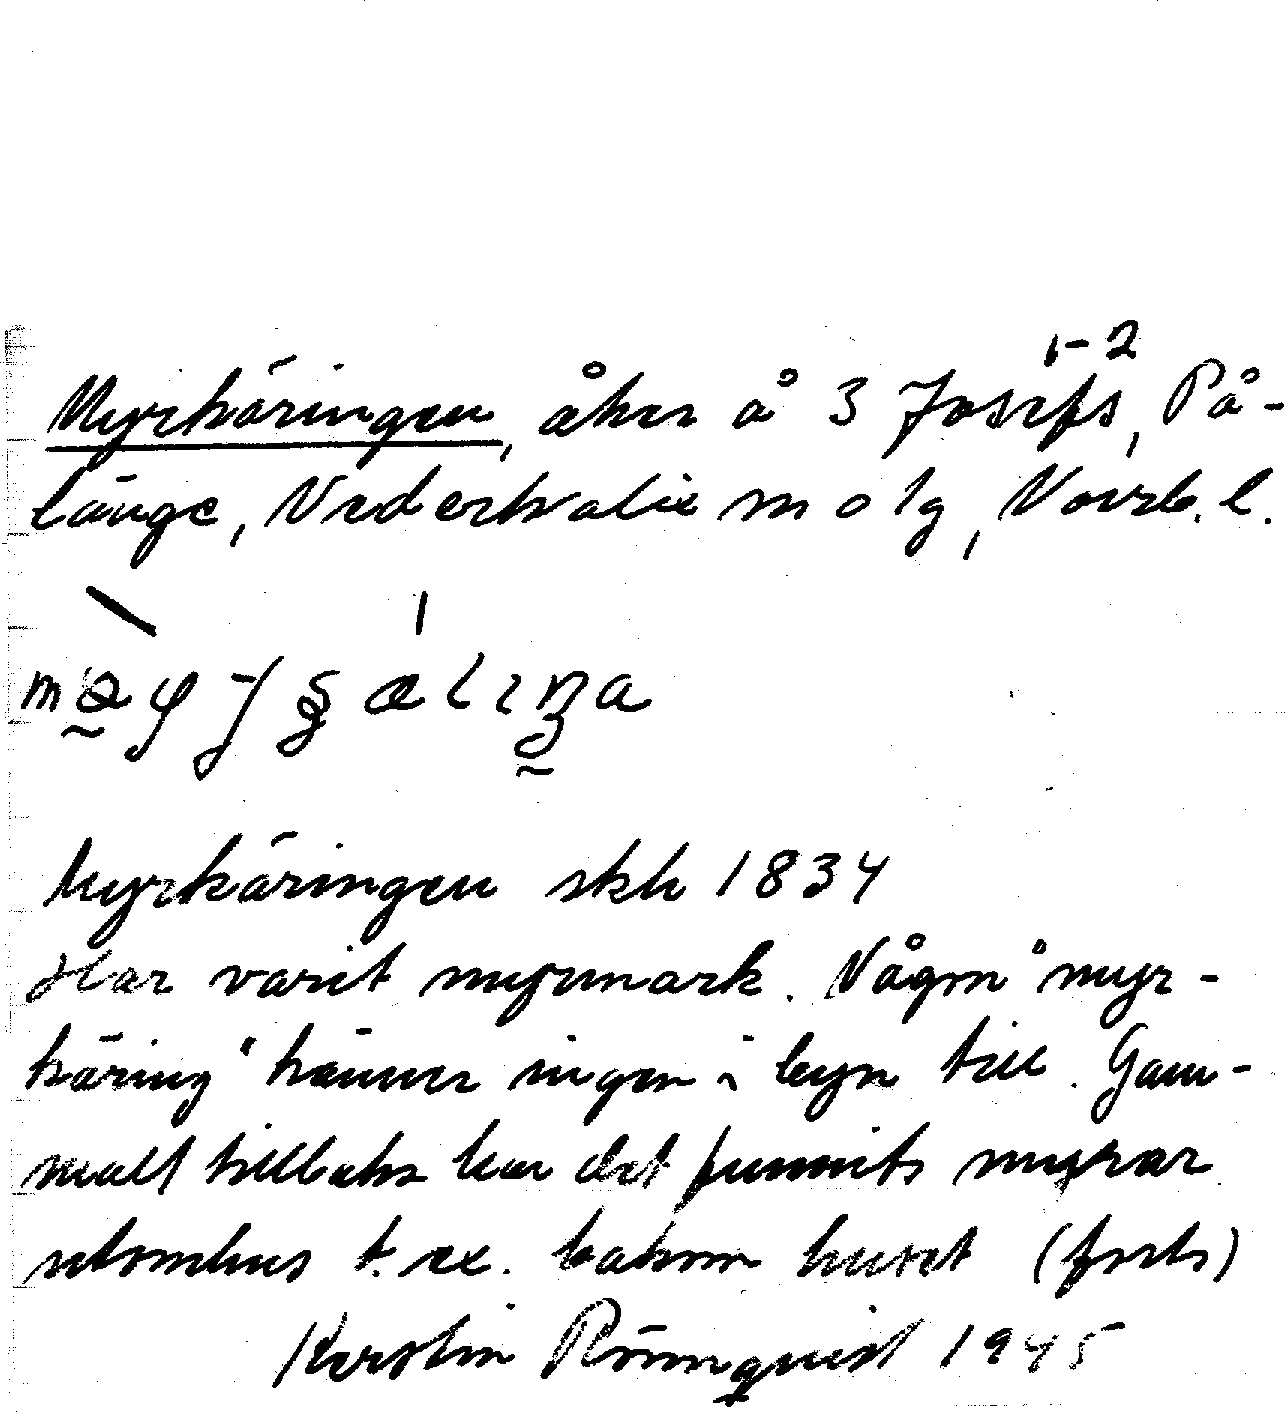 Myrkäringen, åker å 3 Josefs 1-2, På-
länge, Nederkalix m o lg, Norrb. l.
Myrkäringen skh 1834
Har varit myrmark. Någon "myr-
käring" känner ingen i byn till. Gam-
malt tillbaka har det funnits myrar
utomhus t. ex. bakom huset (forts)
Kerstin Rönnquist 1945